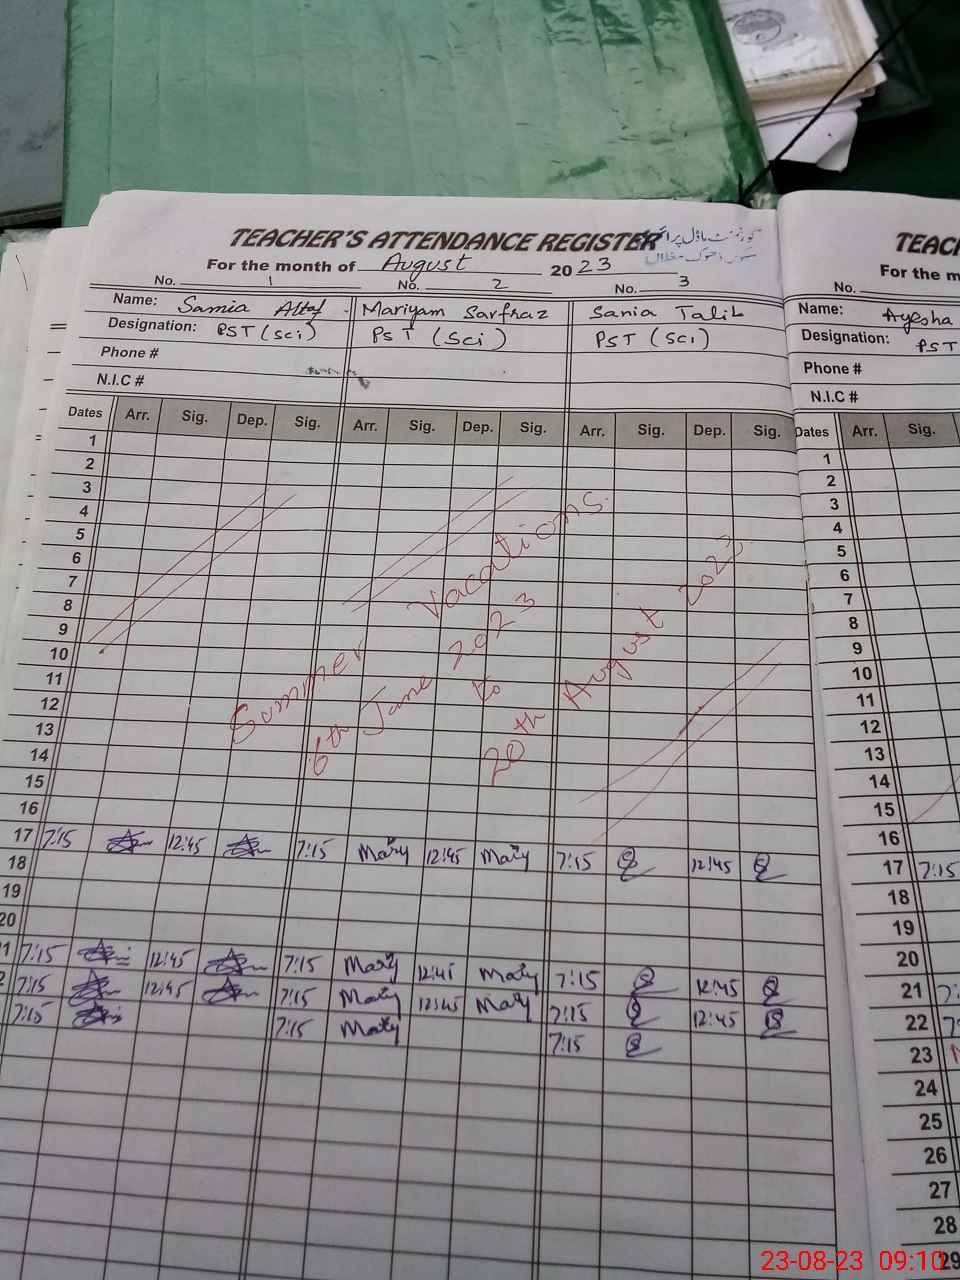 TEACHER'S ATTENDANCE REGISTER
For the month of August 2023
No. 1 No. 2 No. 3
Name: Samia Altaf Mariyam Sarfraz Sania Talib
Designation: PST (Sci) PST (Sci) PST (Sci)
Phone #
N.I.C #
Dates Arr. Sig. Dep. Sig. Arr. Sig. Dep. Sig. Arr. Sig. Dep. Sig.
1
2
3
4
5
6
7
8
9
10
11
12
13
14
15
16
Summer Vacations
6th June 2023
to
20th August 2023
17 7:15 12:45 7:15 Mary 12:45 Mary 7:15 12:45
18
19
20
21 7:15 12:45 7:15 Mary 12:45 Mary 7:15 12:45
2 7:15 12:45 7:15 Mary 12:45 Mary 7:15 12:45
7:15 7:15 Mary 7:15
TEAC
For the m
No.
Name: Ayesha
Designation: PST
Phone #
N.I.C #
Dates Arr. Sig.
1
2
3
4
5
6
7
8
9
10
11
12
13
14
15
16
17 7:15
18
19
20
21
22
23
24
25
26
27
28
29
23-08-23 09:10